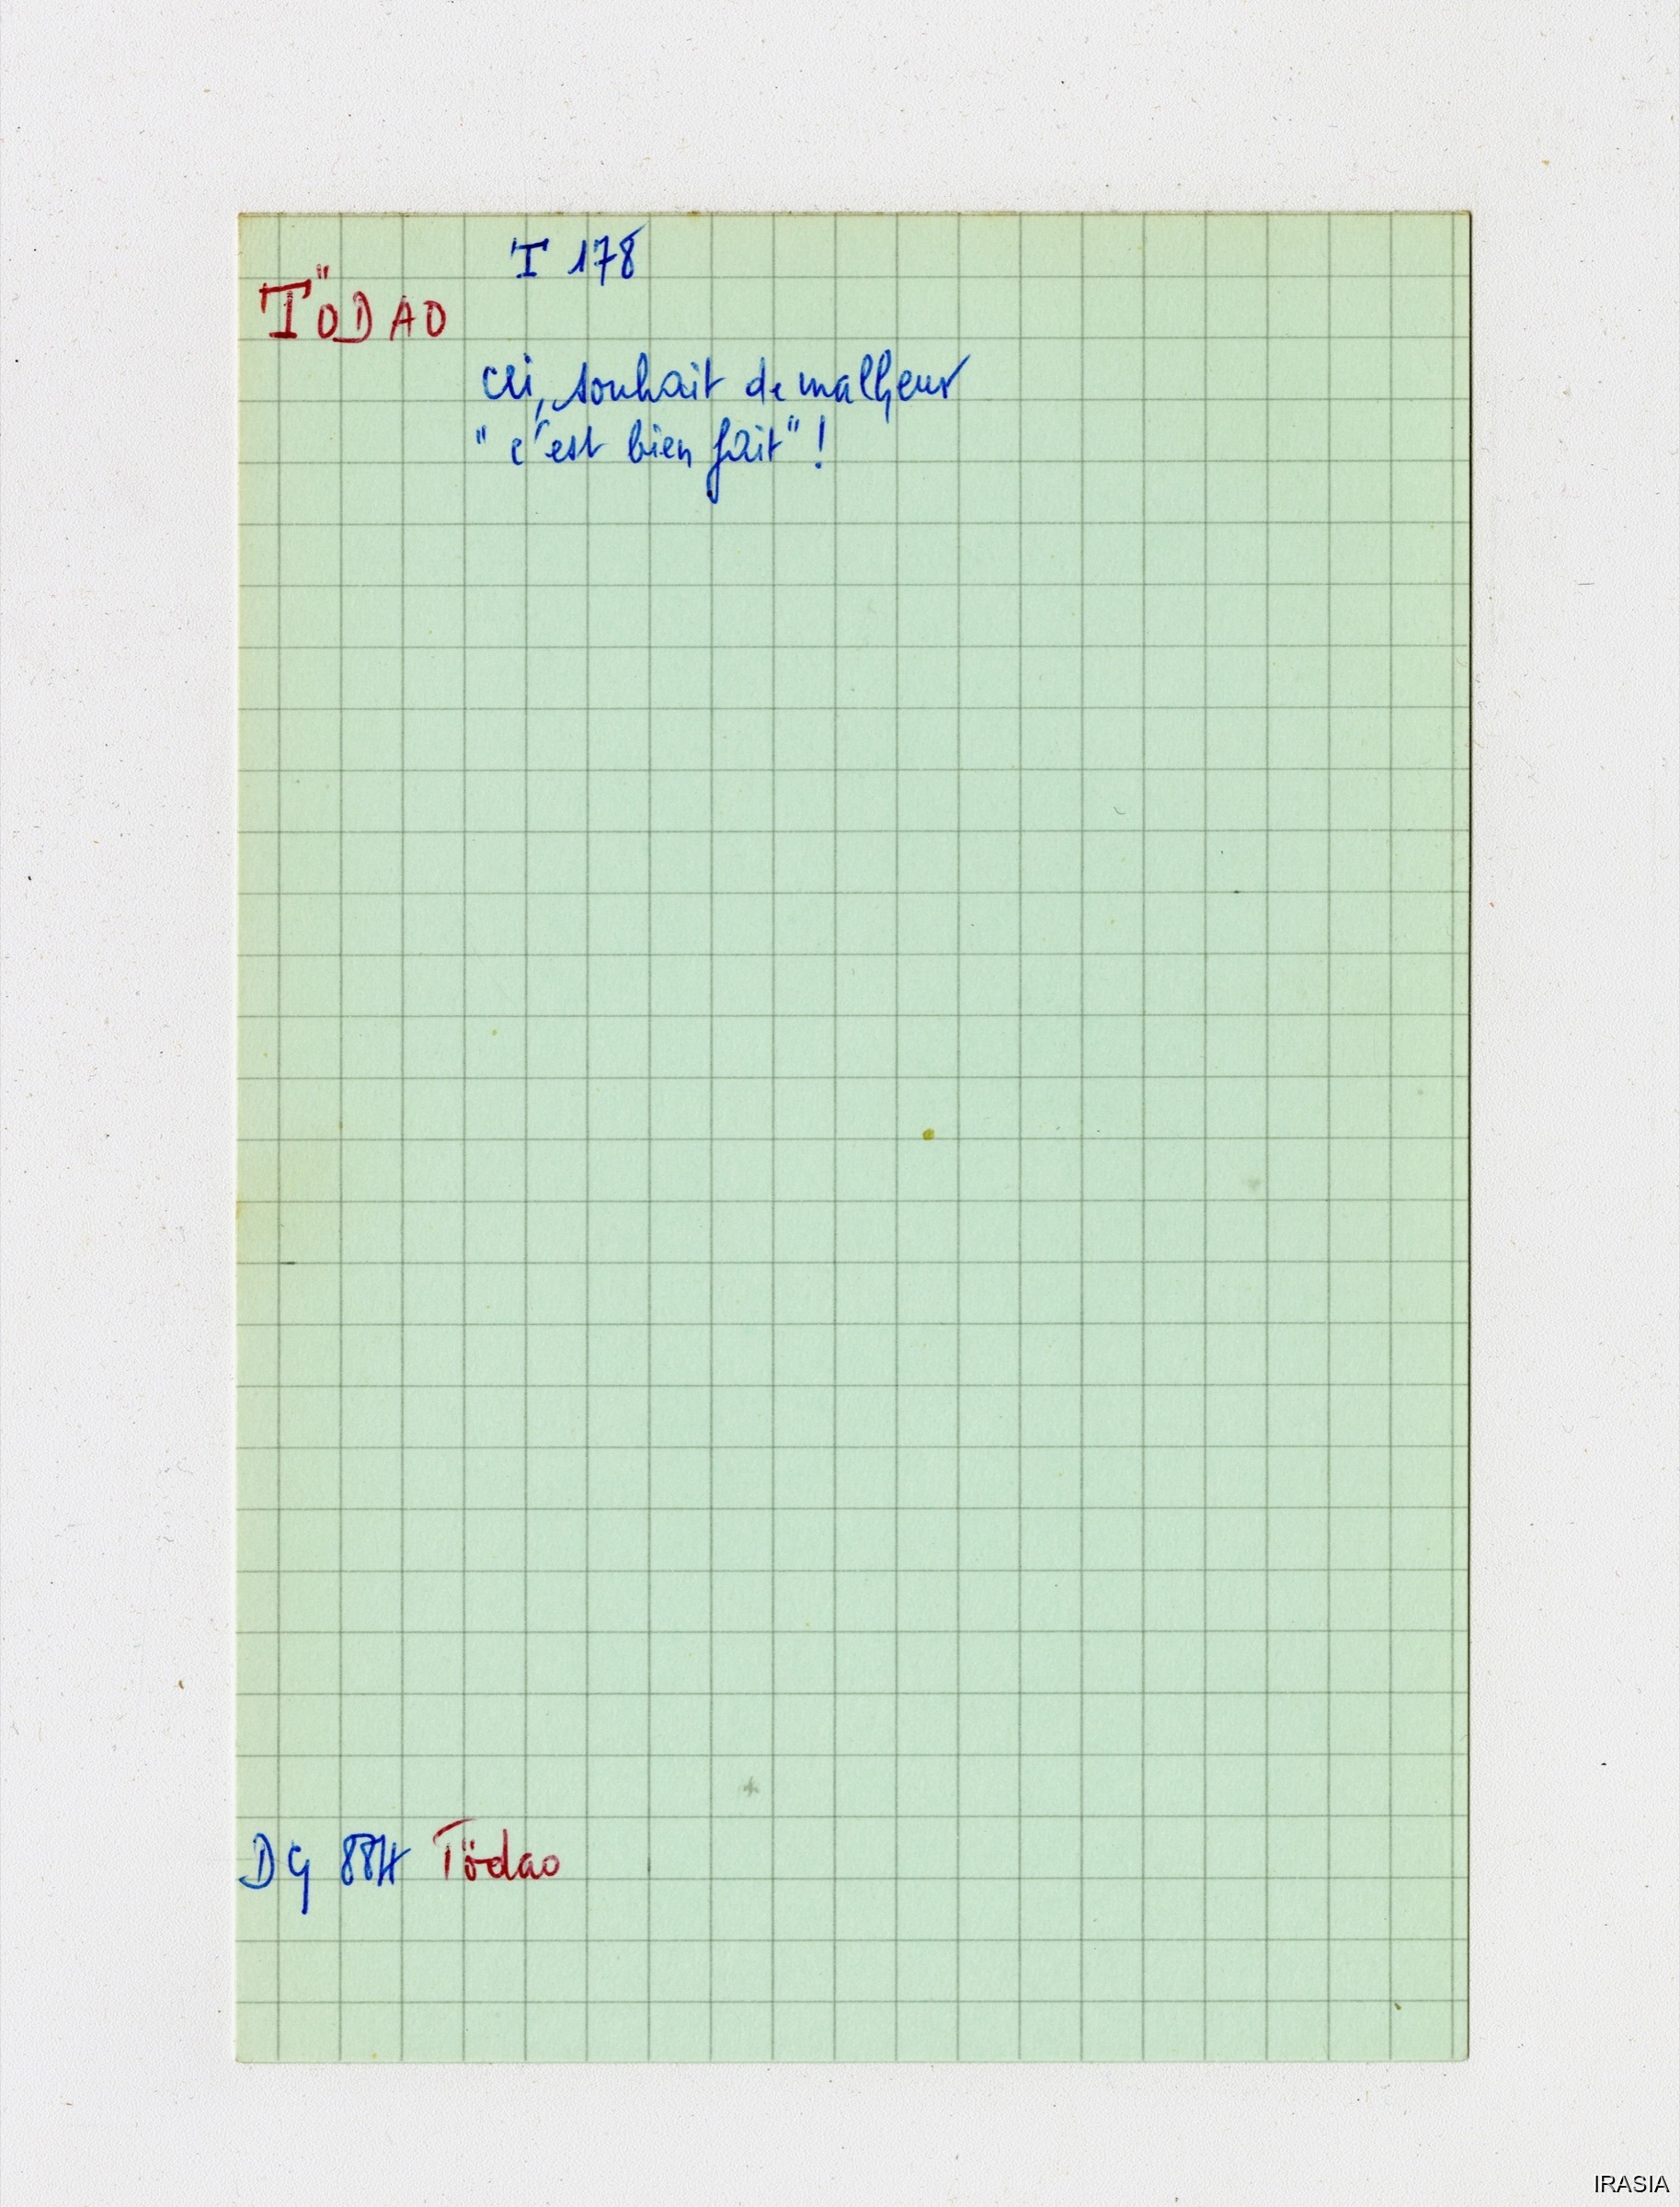 T 178
TÖDAO
cri, souhait de malheur
" c'est bien fait" !
DG Tödao
IRASIA